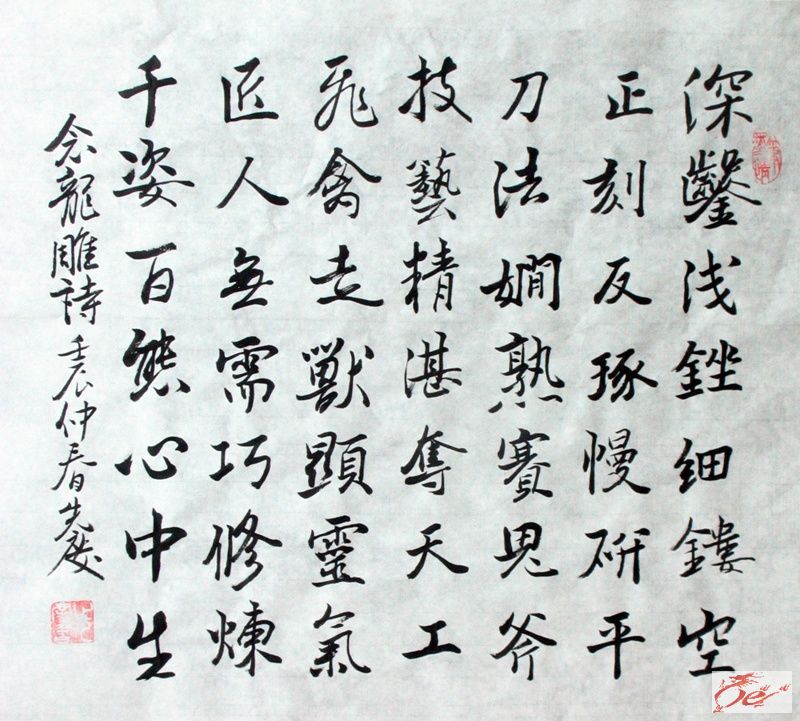 深鑿浅銼細鏤空
正刻反琢慢研平
刀法嫺熟賽鬼斧
技藝精湛奪天工
飛禽走獸顯靈氣
匠人無需巧修煉
千姿百態心中生
念龍雕詩 壬辰仲春先慶